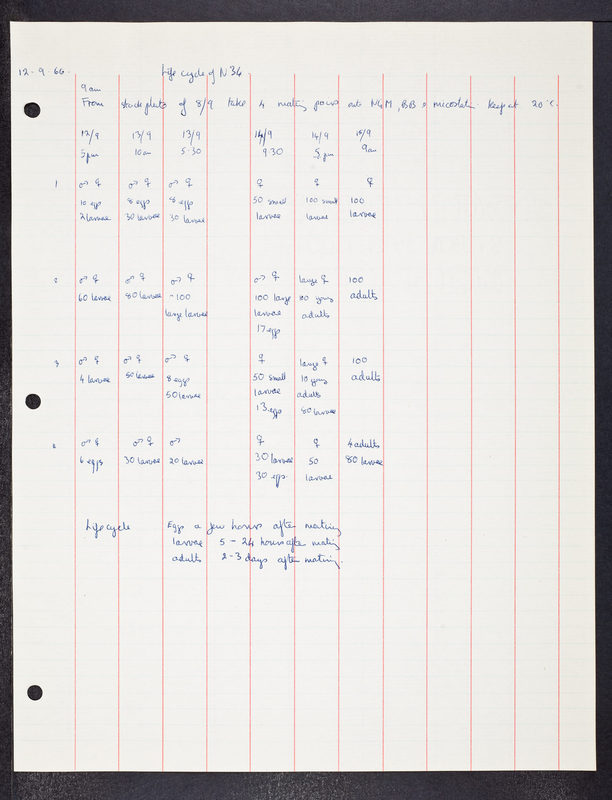 12-9-66.
Life cycle of N34
9am
From stock plate of 8/9 take 4 mating pairs onto NGM, BB + micostatin Keep at 20°c.
12/9 13/9 13/9 14/9 14/9 15/9
5pm 10am 5.30 9.30 5pm 9am
1 ♂ ♀ ♂ ♀ ♂ ♀ ♀ ♀ ♀
10 eggs 8 eggs 8 eggs 50 small 100 small 100
2 larvae 30 larvae 30 larvae larvae larvae larvae
2 ♂ ♀ ♂ ♀ ♂ ♀ ♂ ♀ large ♀ 100
60 larvae 80 larvae ~100 100 large 20 young adults
large larvae larvae adults
17 eggs
3 ♂ ♀ ♂ ♀ ♂ ♀ ♀ large ♀ 100
4 larvae 50 larvae 8 eggs 50 small 10 young adults
50 larvae larvae adults
13 eggs 80 larvae
4 ♂ ♀ ♂ ♀ ♂ ♀ ♀ 4 adults
6 eggs 30 larvae 20 larvae 30 larvae 50 80 larvae
30 eggs larvae
Life cycle Eggs a few hours after mating
larvae 5 - 24 hours after mating
adults 2-3 days after mating.